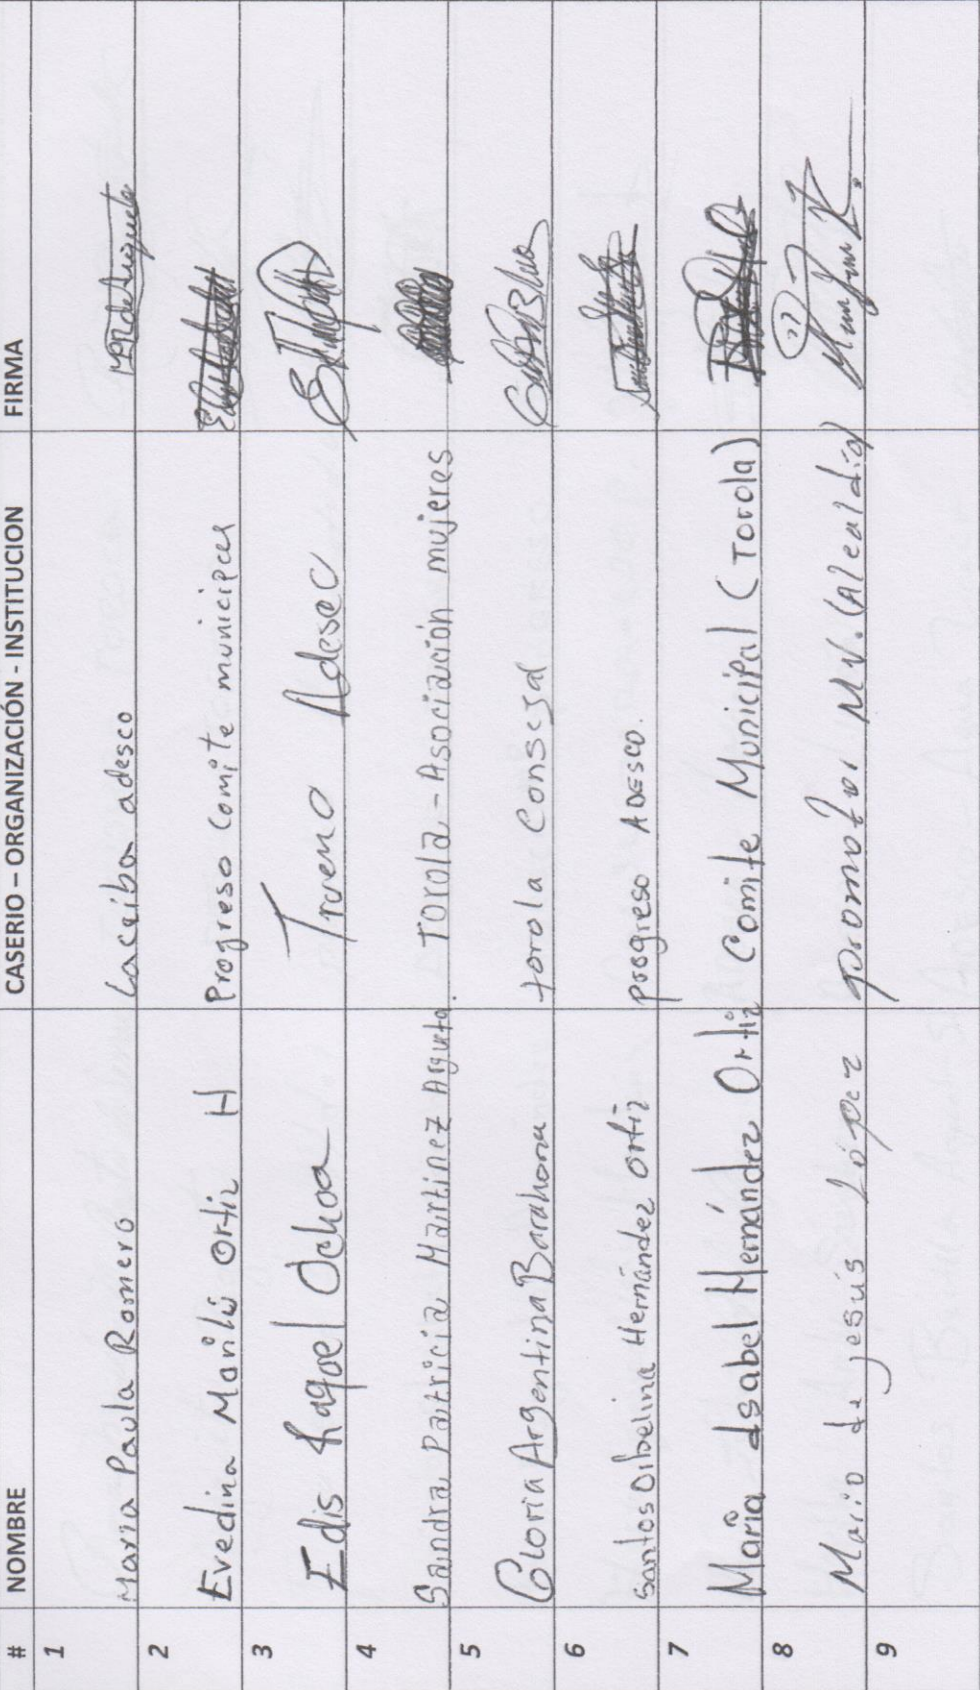 # NOMBRE CASERIO – ORGANIZACIÓN - INSTITUCION FIRMA
1 Maria Paula Romero La ceiba adesco
2 Evedina Marilú Ortiz H Progreso Comite municipal
3 Edis Raquel Ochoa Trueno Adesec
4 Sandra Patricia Martinez Argueta. Torola - Asociación mujeres
5 Gloria Argentina Barahona torola Consejal
6 Santos Oibelina Hernández Ortiz progreso ADESCO.
7 María Isabel Hernández Ortiz Comite Municipal (Torola)
8 Mario de jesús López promotor MV. (Alcaldía)
9